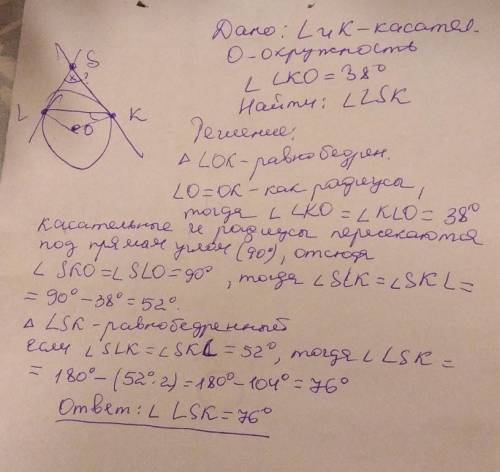 Дано: L и K - касател.
O - окружность
∠ LKO = 38°
Найти: ∠LSK
Решение:
△ LOK - равнобедрен.
LO = OK - как радиусы,
тогда ∠ LKO = ∠KLO = 38°
касательные и радиусы пересекаются
под прямым углом (90°), отсюда
∠ SKO = ∠SLO = 90°, тогда ∠SLK = ∠SKL =
= 90° - 38° = 52°.
△ LSK - равнобедренный
если ∠SLK = ∠SKL = 52°, тогда ∠ LSK =
= 180° - (52°·2) = 180° - 104° = 76°
Ответ: ∠ LSK = 76°
S
?
L
K
O